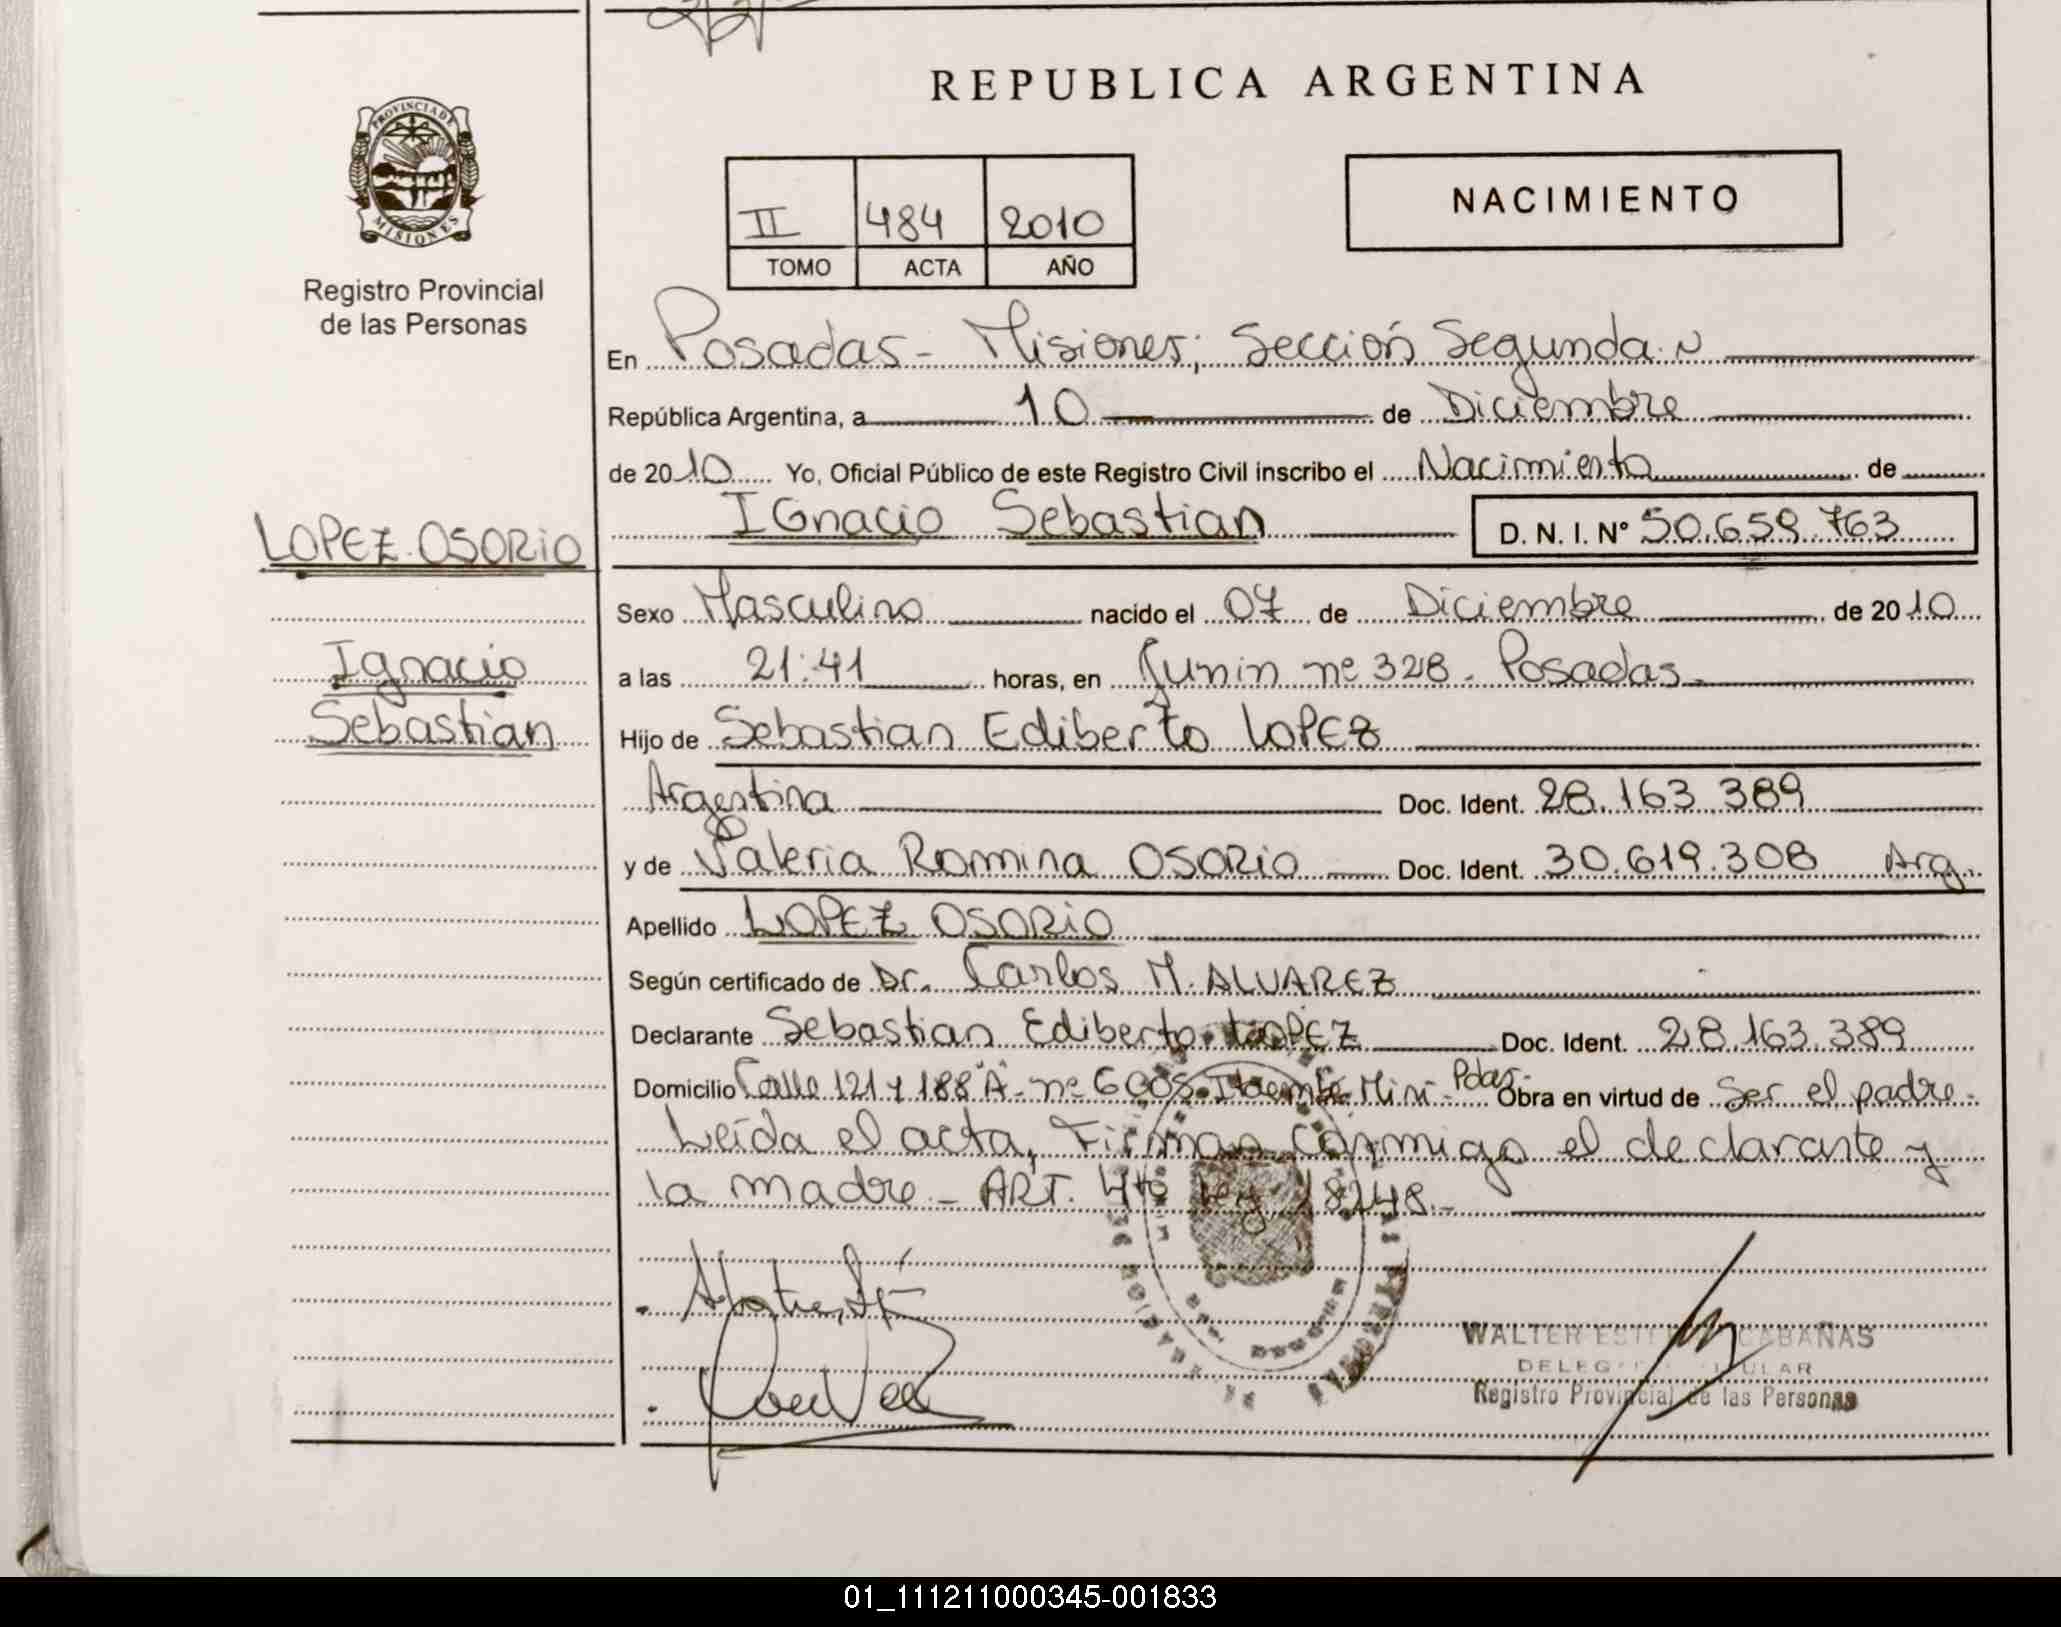 REPUBLICA ARGENTINA
PROVINCIA DE
MISIONES
Registro Provincial
de las Personas
II 484 2010
TOMO ACTA AÑO
NACIMIENTO
En Posadas - Misiones; Sección Segunda
República Argentina, a 10 de Diciembre
de 2010 Yo, Oficial Público de este Registro Civil inscribo el Nacimiento de
LOPEZ OSORIO
IGnacio Sebastian D. N. I. N° 50.659.763
Sexo Masculino nacido el 07 de Diciembre de 2010
Ignacio
Sebastian
a las 21:41 horas, en Junin nº 328 - Posadas -
Hijo de Sebastian Ediberto LOPEZ
Argentina Doc. Ident. 28.163.389
y de Valeria Romina OSORIO Doc. Ident. 30.619.308 Arg.
Apellido LOPEZ OSORIO
Según certificado de Dr. Carlos M. ALVAREZ
Declarante Sebastian Ediberto LOPEZ Doc. Ident. 28.163.389
Domicilio Calle 121 y 188 "A" - nº 6008 - Itaembé Mini - Pdas - Obra en virtud de Ser el padre -
Leída el acta, Firman conmigo el declarante y
la madre - ART. 4to Ley 18248.-
WALTER CABAÑAS
Registro Provincial de las Personas
01_111211000345-001833